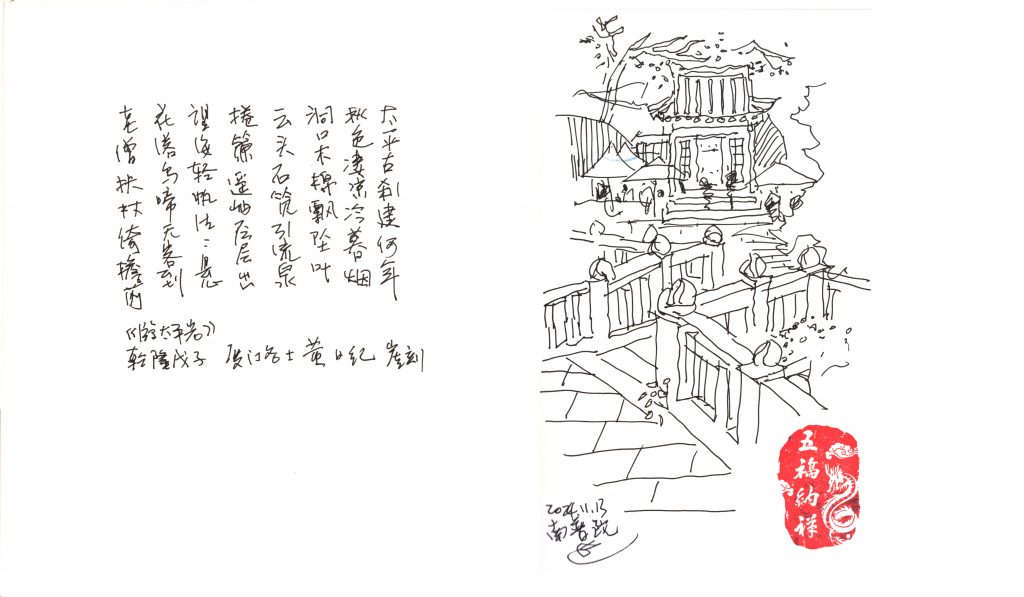 太平古刹建何年
秋色凄凉冷暮烟
洞口木樨飘坠叶
云头石笕引流泉
捲簾遥岫层层出
望海轻帆点々悬
花落鸟啼无客到
老僧扶杖倚檐前
《游太平岩》
乾隆戊子 厦门名士 黄日纪 崖刻
2024.11.13
南普陀
五福納祥